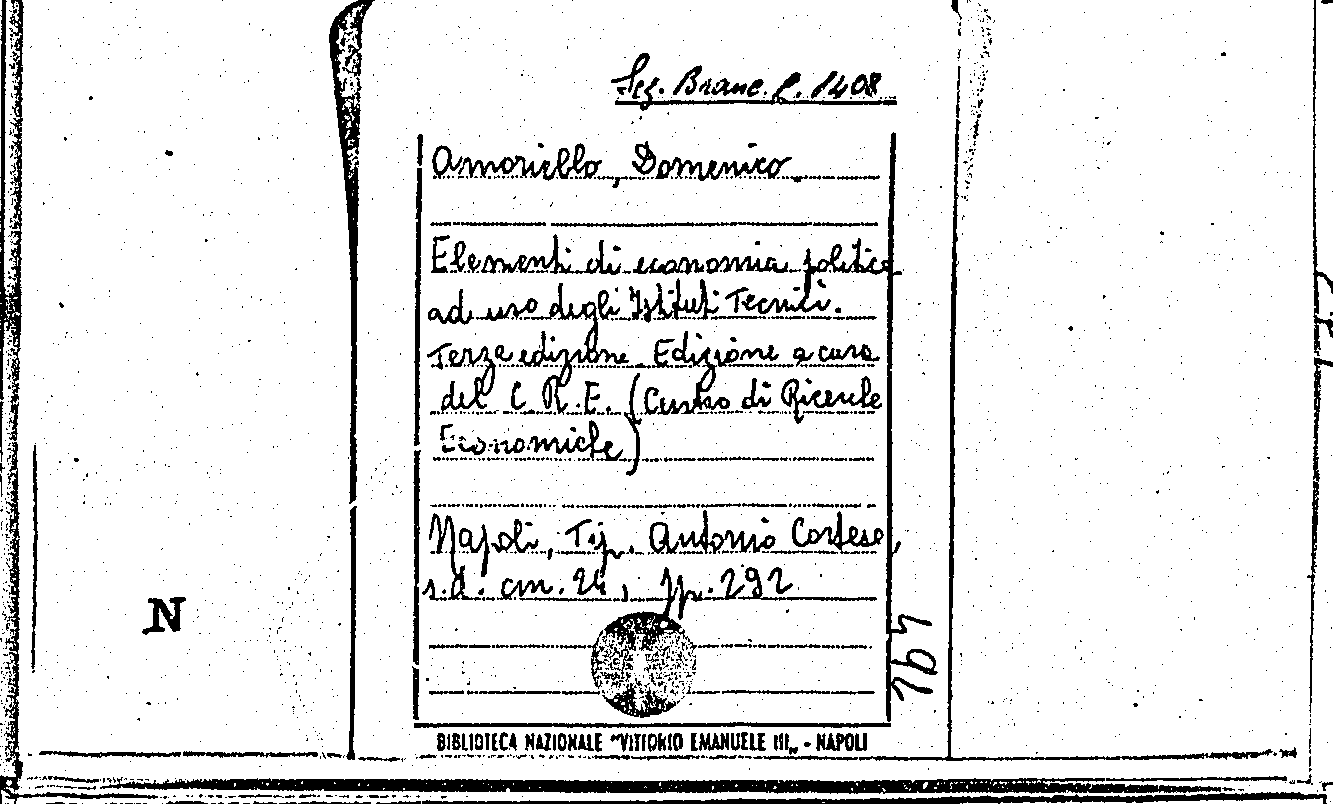 Sez. Branc. C. 1408
Amoriello, Domenico.
Elementi di economia politica
ad uso degli Istituti Tecnici.
Terza edizione. Edizione a cura
del C.R.E. (Centro di Ricerche
Economiche)
Napoli, Tip. Antonio Cortese,
s.d. cm. 24, pp. 292
N
BIBLIOTECA NAZIONALE "VITTORIO EMANUELE III„ - NAPOLI